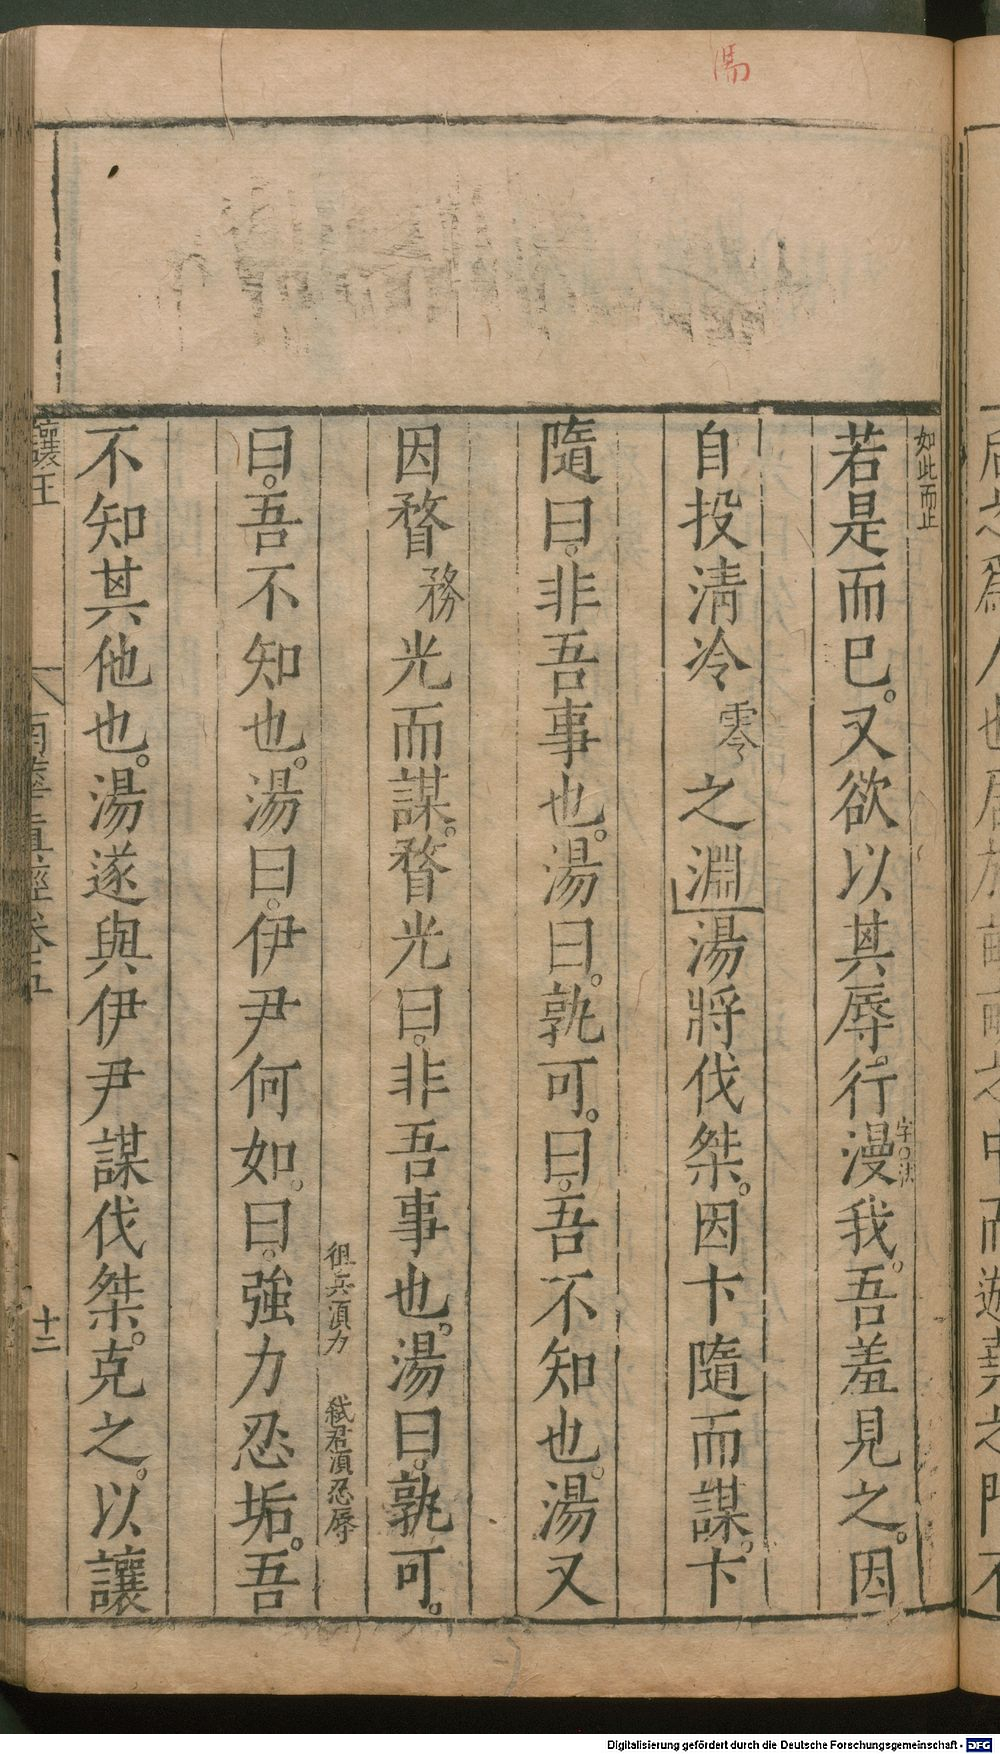 湯
如此而止
若是而已。又欲以其辱。行漫我。吾羞見之。因
字法
自投清冷零之淵湯將伐桀。因卞隨而謀。卞
隨曰。非吾事也。湯曰。孰可。曰。吾不知也。湯又
因瞀務光而謀。瞀光曰。非吾事也。湯曰。孰可。
徂兵湏力 弑君湏忍辱
曰。吾不知也。湯曰。伊尹何如。曰。強力忍垢。吾
不知其他也。湯遂與伊尹謀伐桀。克之。以讓
讓王 南華真經卷五 十二
Digitalisierung gefördert durch die Deutsche Forschungsgemeinschaft - DFG